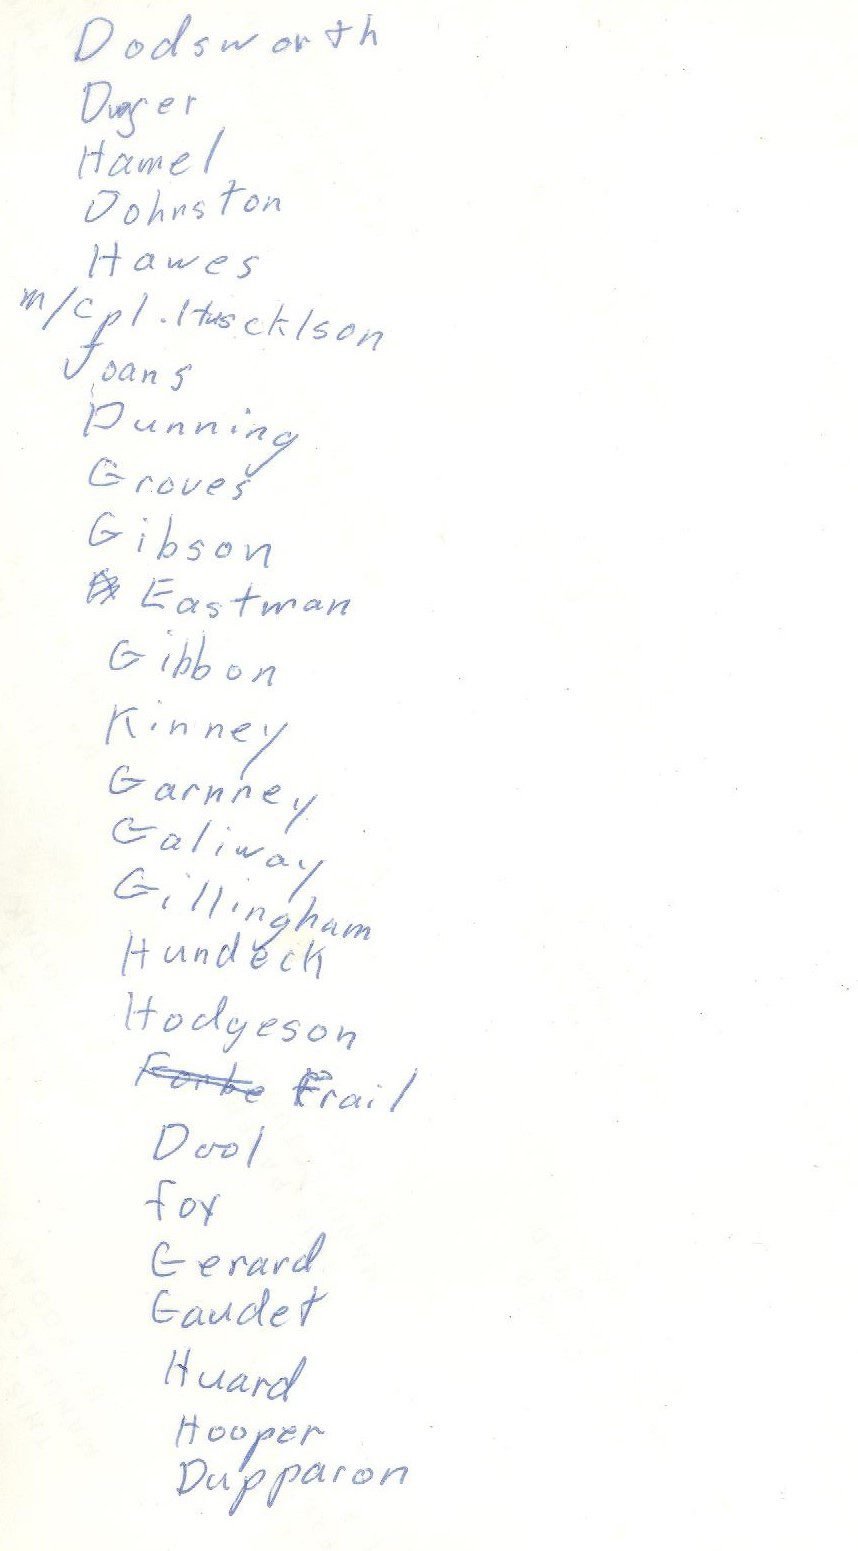 Dodsworth
Hamel
Johnston
Hawes
m/cpl. Huscklson
Joans
Dunning
Groves
Gibson
Eastman
Gibbon
Kinney
Garnney
Galiway
Gillingham
Hundeck
Hodgeson
Forbe Frail
Dool
fox
Gerard
Gaudet
Huard
Hooper
Dupparon